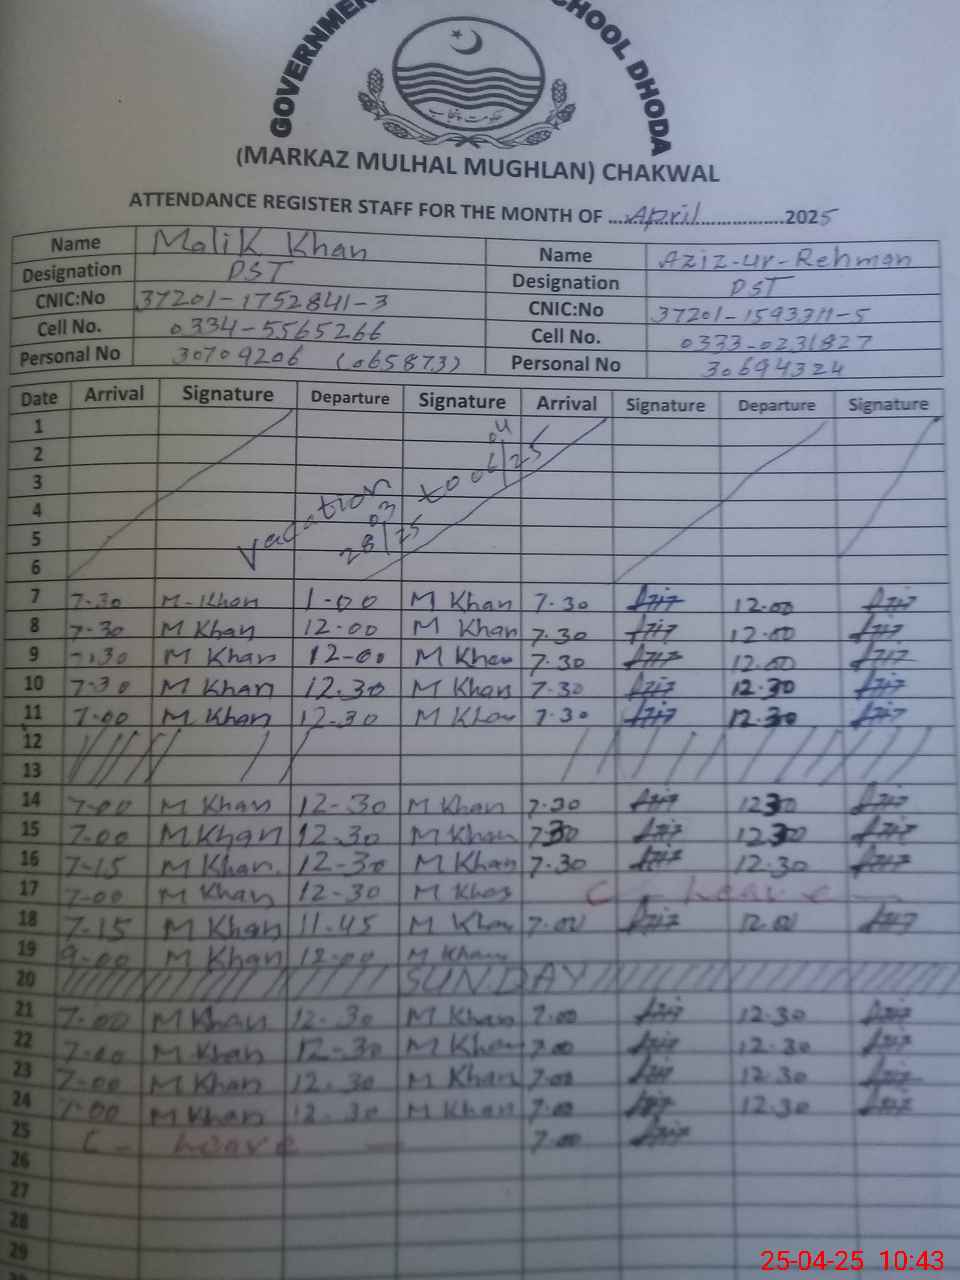 GOVERNMEN SCHOOL DHODA
حکومت پنجاب
(MARKAZ MULHAL MUGHLAN) CHAKWAL
ATTENDANCE REGISTER STAFF FOR THE MONTH OF ...April...2025
Name Malik Khan Name Aziz-ur-Rehman
Designation PST Designation PST
CNIC:No 37201-1752841-3 CNIC:No 37201-1593311-5
Cell No. 0334-5565266 Cell No. 0333-0231827
Personal No 30709206 (065873) Personal No 30694324
Date Arrival Signature Departure Signature Arrival Signature Departure Signature
1
2
3
4
5
6
Vacation 28/03/25 to 06/04/25
7 7-30 M-Khan 1-00 M Khan 7.30 Aziz 12.00 Aziz
8 7-30 M Khan 12-00 M Khan 7.30 Aziz 12.00 Aziz
9 7.30 M Khan 12-00 M Khan 7.30 Aziz 12.00 Aziz
10 7-30 M Khan 12.30 M Khan 7-30 Aziz 12.30 Aziz
11 7-00 M Khan 12-30 M Khan 7.30 Aziz 12.30 Aziz
12
13
14 7-00 M Khan 12-30 M Khan 7.30 Aziz 1230 Aziz
15 7-00 M Khan 12.30 M Khan 730 Aziz 1230 Aziz
16 7-15 M Khan 12-30 M Khan 7.30 Aziz 12.30 Aziz
17 7-00 M Khan 12-30 M Khan C - leave -
18 7-15 M Khan 11.45 M Khan 7.00 Aziz 12.00 Aziz
19 9-00 M Khan 12-00 M Khan
20 SUNDAY
21 7.00 M Khan 12.30 M Khan 7.00 Aziz 12.30 Aziz
22 7-00 M Khan 12-30 M Khan 7.00 Aziz 12.30 Aziz
23 7-00 M Khan 12.30 M Khan 7.00 Aziz 12.30 Aziz
24 7-00 M Khan 12.30 M Khan 7.00 Aziz 12.30 Aziz
25 C - leave - 7.00 Aziz
26
27
28
29
25-04-25 10:43